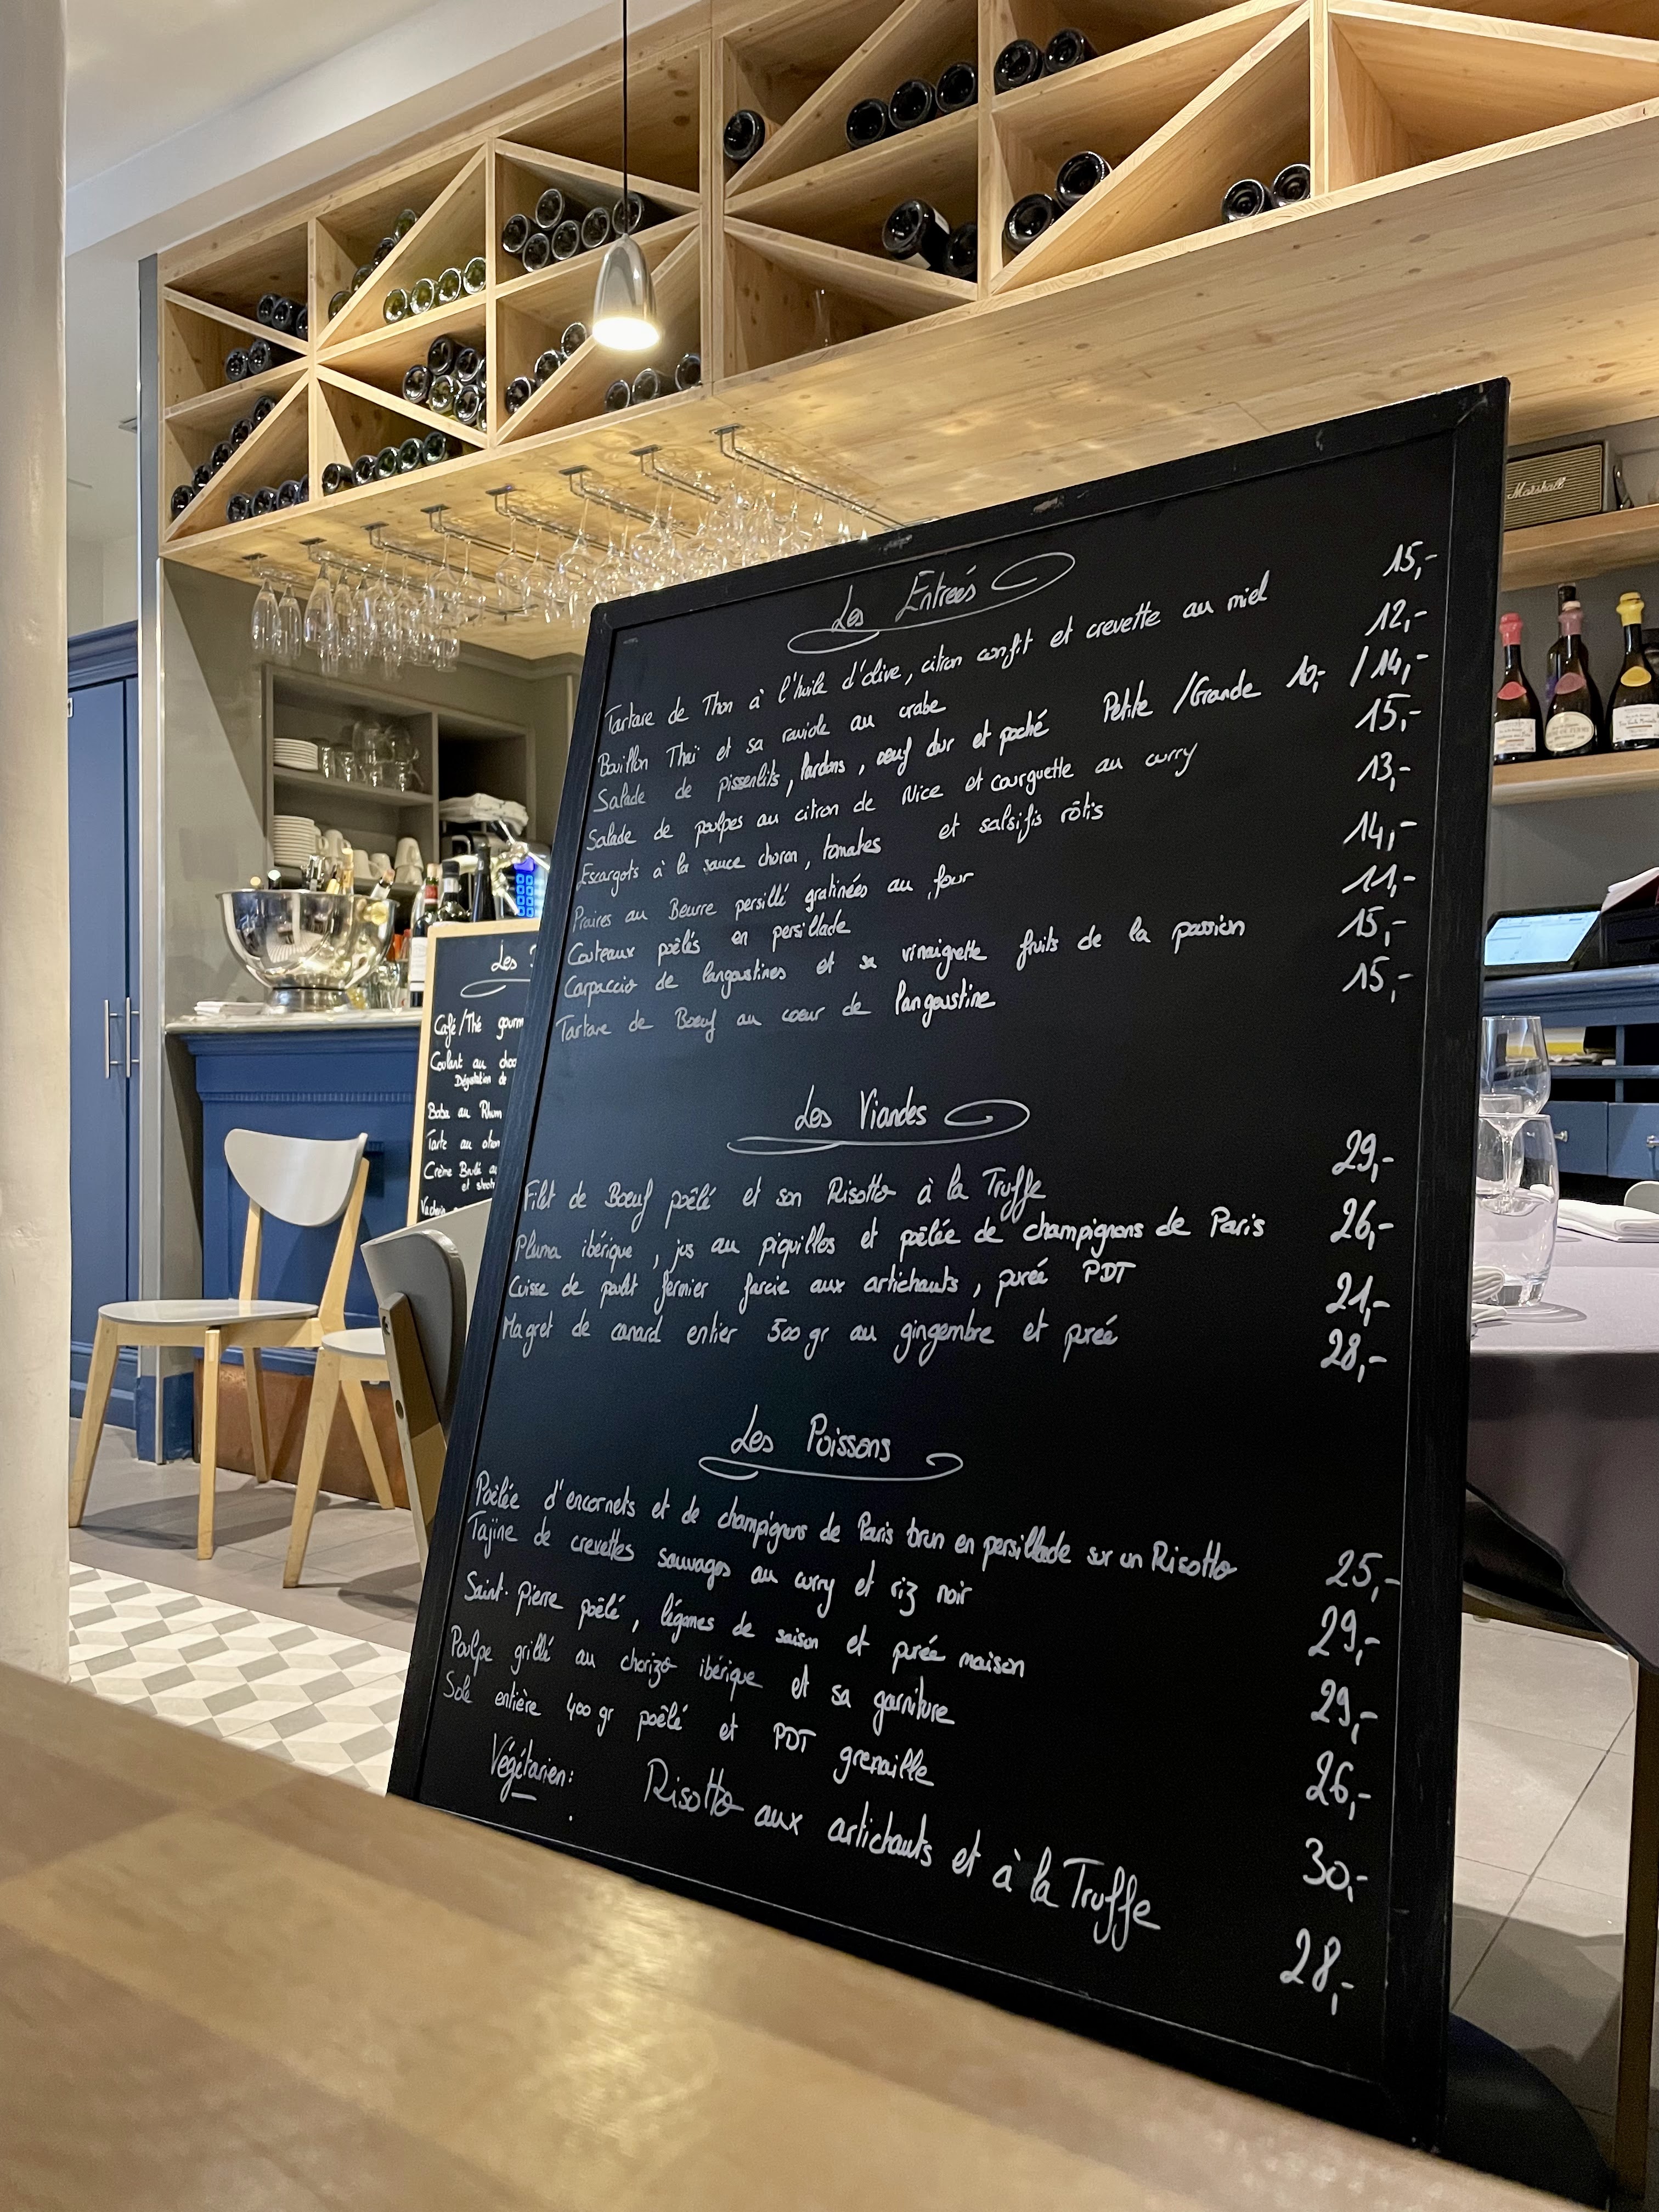 Marshall
Les Entrées
Tartare de Thon à l'huile d'olive, citron confit et crevette au miel 15,-
Bouillon Thaï et sa raviole au crabe 12,-
Salade de pissenlits, lardons, oeuf dur et poché Petite /Grande 10,- /14,-
Salade de poulpes au citron de Nice et courguette au curry 15,-
Escargots à la sauce choron, tomates et salsifis rôtis 13,-
Praires au Beurre persillé gratinées au four 14,-
Couteaux poêlés en persillade 11,-
Carpaccio de langoustines et sa vinaigrette fruits de la passion 15,-
Tartare de Boeuf au coeur de langoustine 15,-
Les Viandes
Filet de Boeuf poêlé et son Risotto à la Truffe 29,-
Pluma ibérique, jus au piquillos et poêlée de champignons de Paris 26,-
Cuisse de poulet fermier farcie aux artichauts, purée PDT 21,-
Magret de canard entier 500 gr au gingembre et purée 28,-
Les Poissons
Poêlée d'encornets et de champignons de Paris brun en persillade sur un Risotto 25,-
Tajine de crevettes sauvages au curry et riz noir 29,-
Saint-Pierre poêlé, légumes de saison et purée maison 29,-
Poulpe grillé au chorizo ibérique et sa garniture 26,-
Sole entière 400 gr poêlé et PDT grenaille 30,-
Végétarien: Risotto aux artichauts et à la Truffe 28,-
Les
Café/Thé gourm
Coulant au choc
Dégustation de
Baba au Rhum
Tarte au citron
Crème Brulé au
et